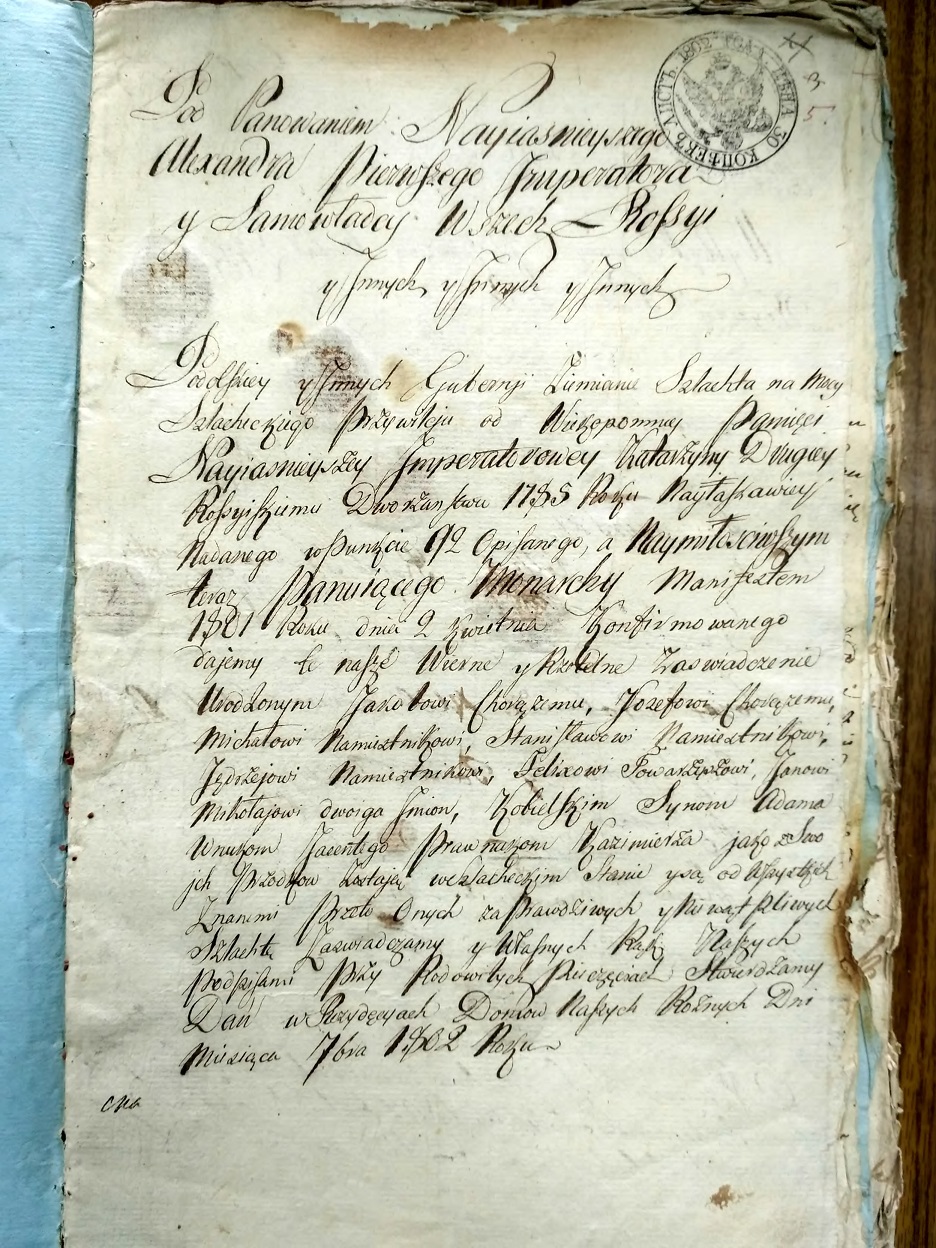 ЛИСТЪ 1802 ГОДА ЦѢНА 30 КОПѢЕКЪ
3
5.
Pod Panowaniem Nayiasnieyszego
Alexandra Pierwszego Imperatora
y Samowładcy Wszech Rossyi
y Innych y Innych y Innych
Podolskiey y Innych Gubernji Ziemianie Szlachta na Mocy
Szlacheckiego Przywileju od Wiekopomney Pamięci
Nayiasnieyszey Imperatorowey Katarzyny Drugiey
Rossyiskiemu Dworżanstwu 1785 Roku Nayłaskawiey
Nadanego w Punkcie 92 Opisanego, a Naymiłosciwszym
teraz Panuiącego Monarchy Manifestem
1801 Roku dnia 2 Kwietnia Konfirmowanego
dajemy te nasze Wierne y Rzetelne Zaswiadczenie
Urodzonym Jakubowi Chorążemu, Jozefowi Chorążemu,
Michałowi Namiestnikowi, Stanisławowi Namiestnikowi,
Jędrzejowi Namiestnikowi, Felixowi Towarzyszowi, Janowi
Mikołajowi dwoyga Imion, Kobielskim Synom Adama
Wnukom Jacentego Prawnukom Kazimierza jako z Swo
jch Przodkow zostają w szlacheckim Stanie y są od Wszystkich
Znanemi Przeto Onych za Prawdziwych y Niewątpliwych
Szlachtę Zaswiadczamy y Własnych Rąk Naszych
Podpisami Przy Rodowitych Pieczęciach Stwierdzamy
Dan w Rezydęcyach Domow Naszych Rożnych Dni
Miesiąca 7bra 1802 Roku